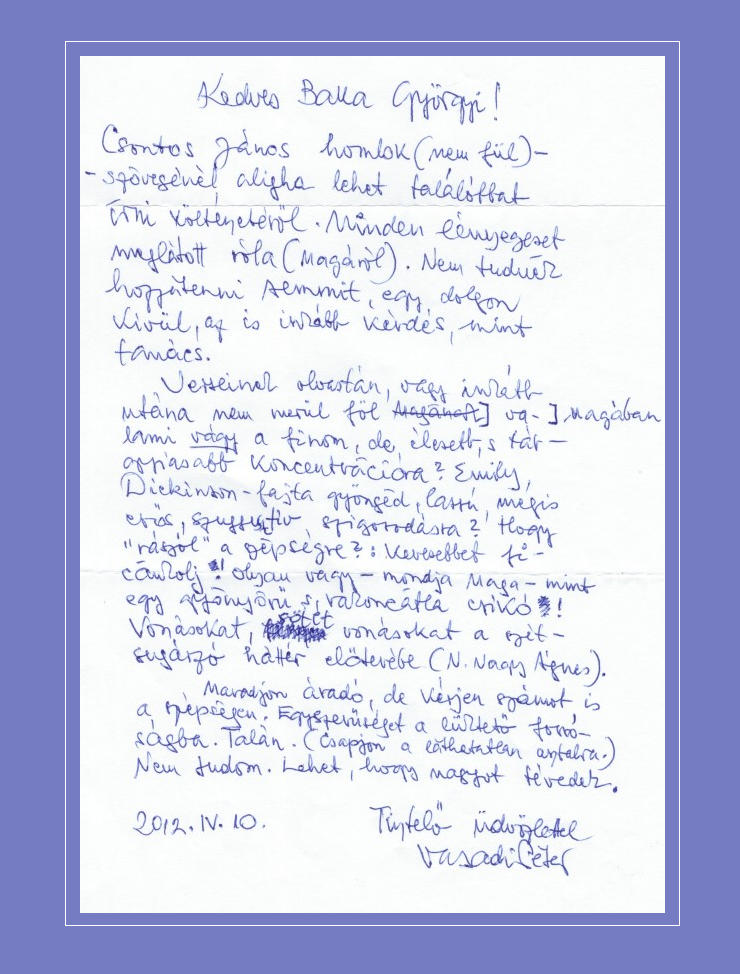 Kedves Balla Györgyi!
Csontos János homlok(nem fül)-
-szövegénél aligha lehet találóbbat
írni költészetéről. Minden lényegeset
meglátott róla (Magáról). Nem tudnék
hozzátenni semmit, egy dolgon
kívül, az is inkább kérdés, mint
tanács.
Verseinek olvastán, vagy inkább
utána nem merül föl Magának] va-] Magában
lami vágy a finom, de élesebb, s tár-
gyiasabb koncentrációra? Emily
Dickinson-fajta gyöngéd, lassú, mégis
erős, szuggesztív szigorodásra? Hogy
"rászól" a szépségre?: Kevesebbet fi-
cánkolj! Olyan vagy – mondja Maga – mint
egy gyönyörű s rakoncátlan csikó!
Vonásokat, sötét vonásokat a szét-
sugárzó háttér előterébe (N. Nagy Ágnes).
Maradjon áradó, de kérjen számot is
a szépségen. Egyszerűséget a lüktető forró-
ságba. Talán. (Csapjon a láthatatlan asztalra.)
Nem tudom. Lehet, hogy nagyot tévedek.
2012. IV. 10.
Tisztelő üdvözlettel
Vasadi Péter